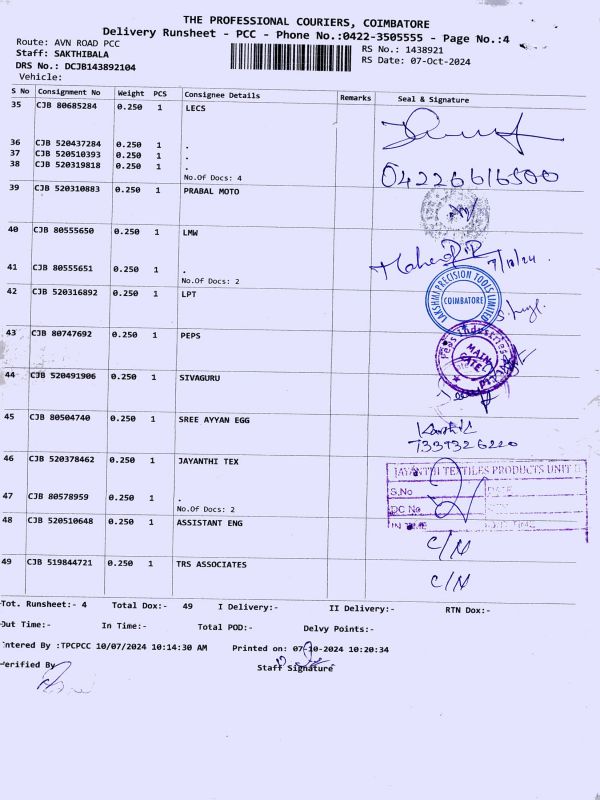 THE PROFESSIONAL COURIERS, COIMBATORE
Delivery Runsheet - PCC - Phone No.:0422-3505555 - Page No.:4
Route: AVN ROAD PCC
RS No.: 1438921
Staff: SAKTHIBALA
RS Date: 07-Oct-2024
DRS No.: DCJB143892104
Vehicle:
S No Consignment No Weight PCS Consignee Details Remarks Seal & Signature
35 CJB 80685284 0.250 1 LECS
36 CJB 520437284 0.250 1 .
37 CJB 520510393 0.250 1 .
38 CJB 520319818 0.250 1 .
No.Of Docs: 4
04226616500
39 CJB 520310883 0.250 1 PRABAL MOTO
40 CJB 80555650 0.250 1 LMW
7/10/24
41 CJB 80555651 0.250 1 .
No.Of Docs: 2
42 CJB 520316892 0.250 1 LPT
LAKSHMI PRECISION TOOLS LIMITED
COIMBATORE
43 CJB 80747692 0.250 1 PEPS
MAIN GATE
44 CJB 520491906 0.250 1 SIVAGURU
45 CJB 80504740 0.250 1 SREE AYYAN EGG
46 CJB 520378462 0.250 1 JAYANTHI TEX
JAYANTHI TEXTILES PRODUCTS UNIT II
S.No DATE
47 CJB 80578959 0.250 1 .
No.Of Docs: 2
DC No
IN TIME OUT TIME
48 CJB 520510648 0.250 1 ASSISTANT ENG
C/N
49 CJB 519844721 0.250 1 TRS ASSOCIATES
C/N
Tot. Runsheet:- 4 Total Dox:- 49 I Delivery:- II Delivery:- RTN Dox:-
Out Time:- In Time:- Total POD:- Delvy Points:-
ntered By :TPCPCC 10/07/2024 10:14:30 AM Printed on: 07-10-2024 10:20:34
erified By
Staff Signature